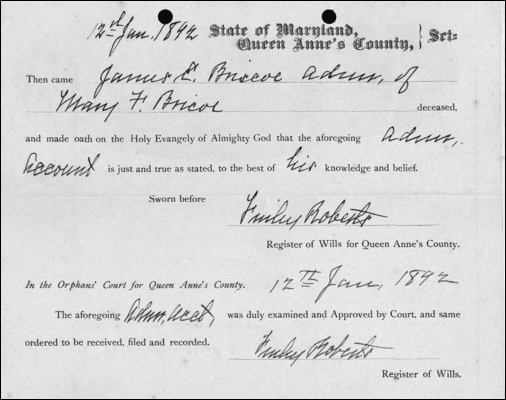 12th Jan. 1892 State of Maryland,
Queen Anne's County, } Sct:
Then came James E. Briscoe Admr, of
Mary F. Bricoe deceased,
and made oath on the Holy Evangely of Almighty God that the aforegoing Admr,
Account is just and true as stated, to the best of his knowledge and belief.
Sworn before
Finley Roberts
Register of Wills for Queen Anne's County.
In the Orphans' Court for Queen Anne's County. 12TH Jan, 1892
The aforegoing Admr, Acct, was duly examined and Approved by Court, and same
ordered to be received, filed and recorded. Finley Roberts
Register of Wills.